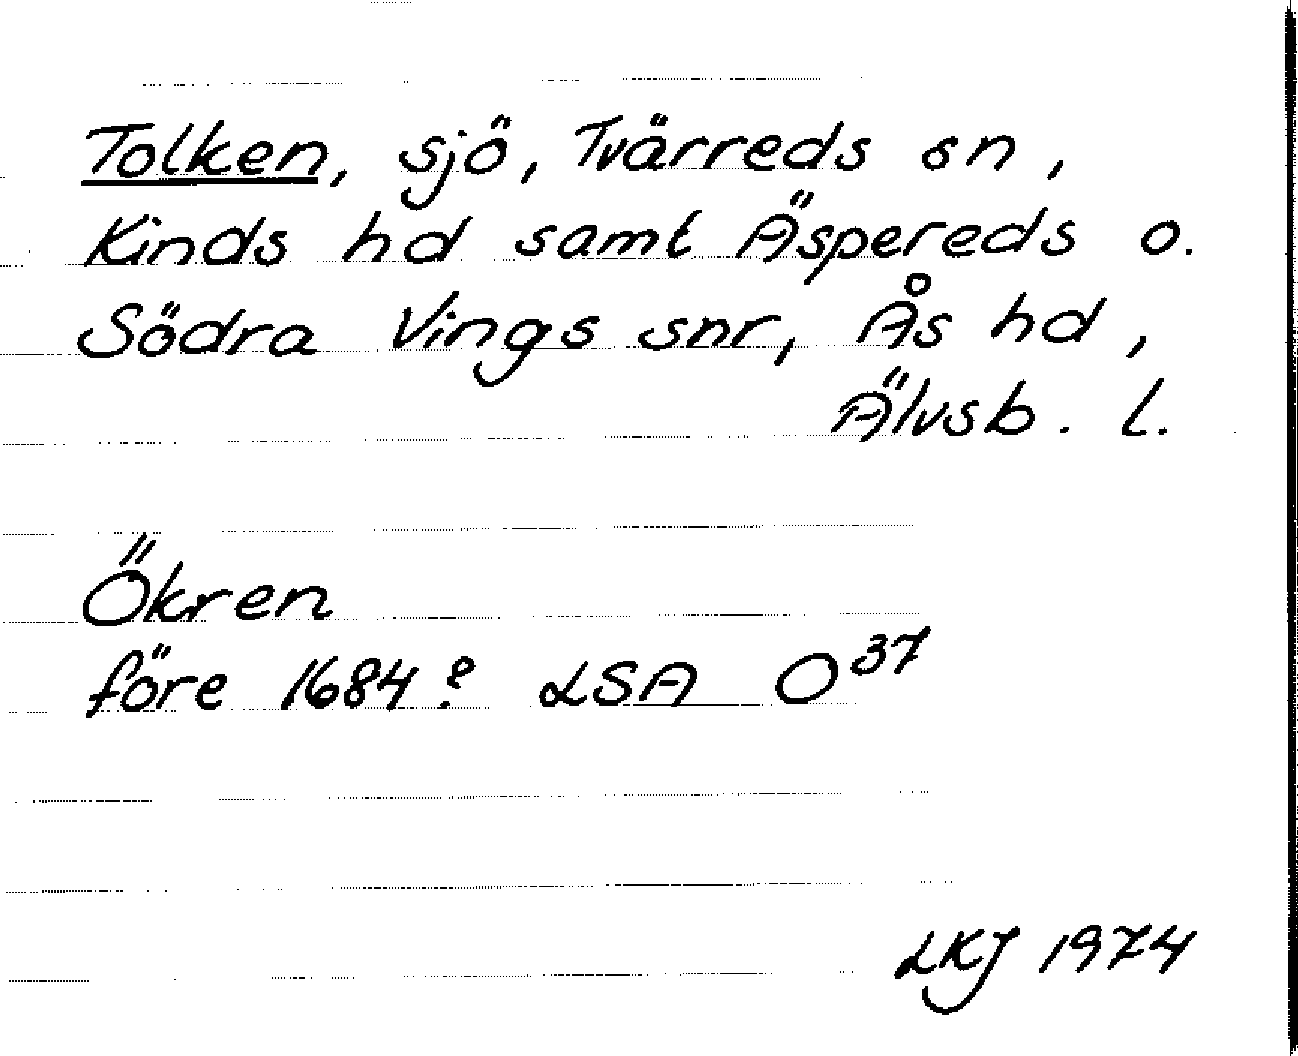 Tolken, sjö, Tvärreds sn,
Kinds hd samt Äspereds o.
Södra Vings snr, Ås hd,
Älvsb. l.
Ökren
före 1684? LSA O37
LKJ 1974